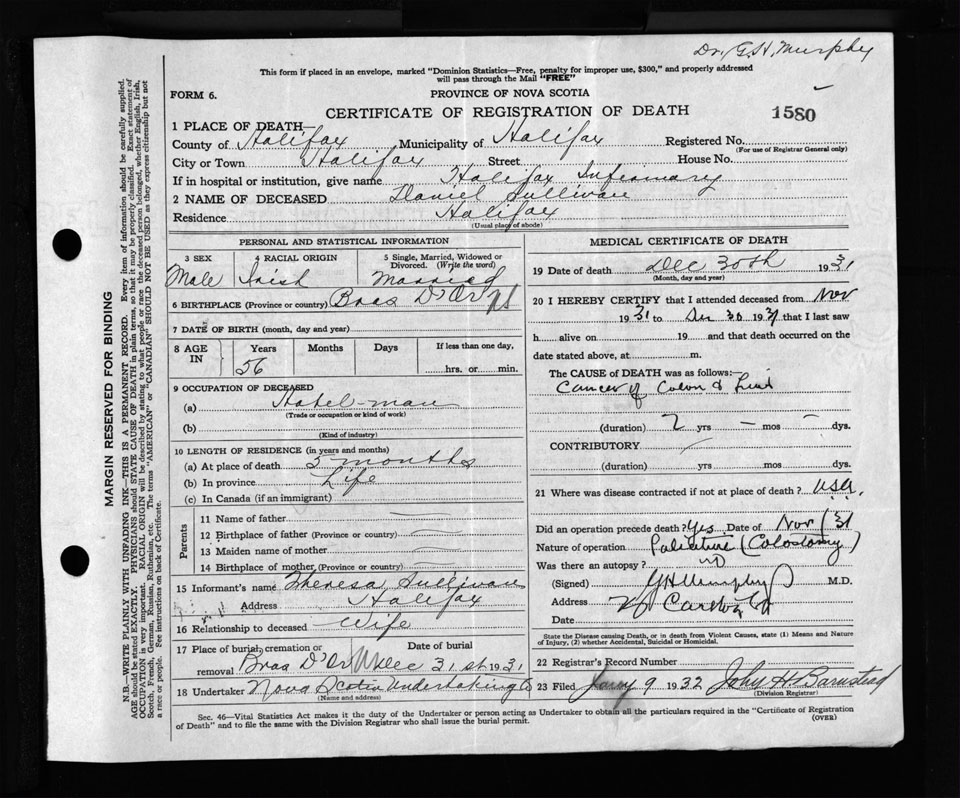 Dr. G. H. Murphy
This form if placed in an envelope, marked "Dominion Statistics—Free, penalty for improper use, $300," and properly addressed
will pass through the Mail "FREE"
FORM 6.
PROVINCE OF NOVA SCOTIA
CERTIFICATE OF REGISTRATION OF DEATH
1580
1 PLACE OF DEATH—
County of Halifax Municipality of Halifax Registered No.
(For use of Registrar General only)
City or Town Halifax Street House No.
If in hospital or institution, give name Halifax Infirmary
2 NAME OF DECEASED Daniel Sullivan
Residence Halifax
(Usual place of abode)
PERSONAL AND STATISTICAL INFORMATION
3 SEX 4 RACIAL ORIGIN 5 Single, Married, Widowed or
Divorced. (Write the word)
Male Irish Married
6 BIRTHPLACE (Province or country) Bras D'Or NS
7 DATE OF BIRTH (month, day and year)
8 AGE IN Years Months Days If less than one day,
56 hrs. or min.
9 OCCUPATION OF DECEASED
(a) Hotel-man
(Trade or occupation or kind of work)
(b)
(Kind of industry)
10 LENGTH OF RESIDENCE (in years and months)
(a) At place of death 5 months
(b) In province Life
(c) In Canada (if an immigrant)
Parents
11 Name of father
12 Birthplace of father (Province or country)
13 Maiden name of mother
14 Birthplace of mother (Province or country)
15 Informant's name Theresa Sullivan
Address Halifax
16 Relationship to deceased Wife
17 Place of burial, cremation or Date of burial
removal Bras D'Or Dec 31st 1931
18 Undertaker Nova Scotia Undertaking Co
(Name and address)
MEDICAL CERTIFICATE OF DEATH
19 Date of death Dec 30th 1931
(Month, day and year)
20 I HEREBY CERTIFY that I attended deceased from Nov
1931 to Dec 30 1931 that I last saw
h alive on 19 and that death occurred on the
date stated above, at m.
The CAUSE of DEATH was as follows:—
Cancer of Colon &
(duration) 2 yrs — mos — dys.
CONTRIBUTORY
(duration) yrs. mos. dys.
21 Where was disease contracted if not at place of death? USA.
Did an operation precede death? Yes Date of Nov / 31
Nature of operation Paliative (Colostomy)
Was there an autopsy? no
(Signed) G H Murphy M.D.
Address
Date
State the Disease causing Death, or in death from Violent Causes, state (1) Means and Nature
of Injury, (2) whether Accidental, Suicidal or Homicidal.
22 Registrar's Record Number
23 Filed Jany 9 1932 John H Barnstead
(Division Registrar)
Sec. 46—Vital Statistics Act makes it the duty of the Undertaker or person acting as Undertaker to obtain all the particulars required in the "Certificate of Registration
of Death" and to file the same with the Division Registrar who shall issue the burial permit.
(OVER)
MARGIN RESERVED FOR BINDING
N.B.—WRITE PLAINLY WITH UNFADING INK—THIS IS A PERMANENT RECORD. Every item of information should be carefully supplied.
AGE should be stated EXACTLY. PHYSICIANS should STATE CAUSE OF DEATH in plain terms, so that it may be properly classified. Exact statement of
OCCUPATION is very important. RACIAL ORIGIN will be described by stating to what people or race the deceased person belonged, whether English, Irish,
Scotch, French, German, Russian, Ruthenian, etc. The terms "AMERICAN" or "CANADIAN" SHOULD NOT BE USED as they express citizenship but not
a race or people. See instructions on back of Certificate.